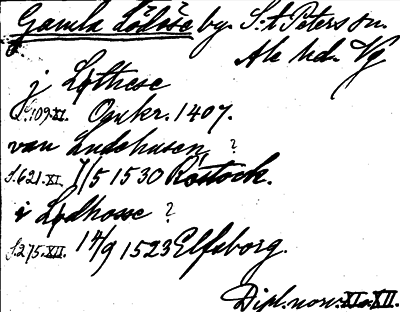 Gamla Lödöse by. S:t Peters sn.
Ale hd. Vg
j Løthese
S.109.XI. Omkr. 1407.
van Ludehusen ?
S.621.XI. 7/5 1530 Rostock.
i Lødhosse ?
S.275.XII. 14/9 1523 Elfsborg.
Dipl. norv. XI o. XII.